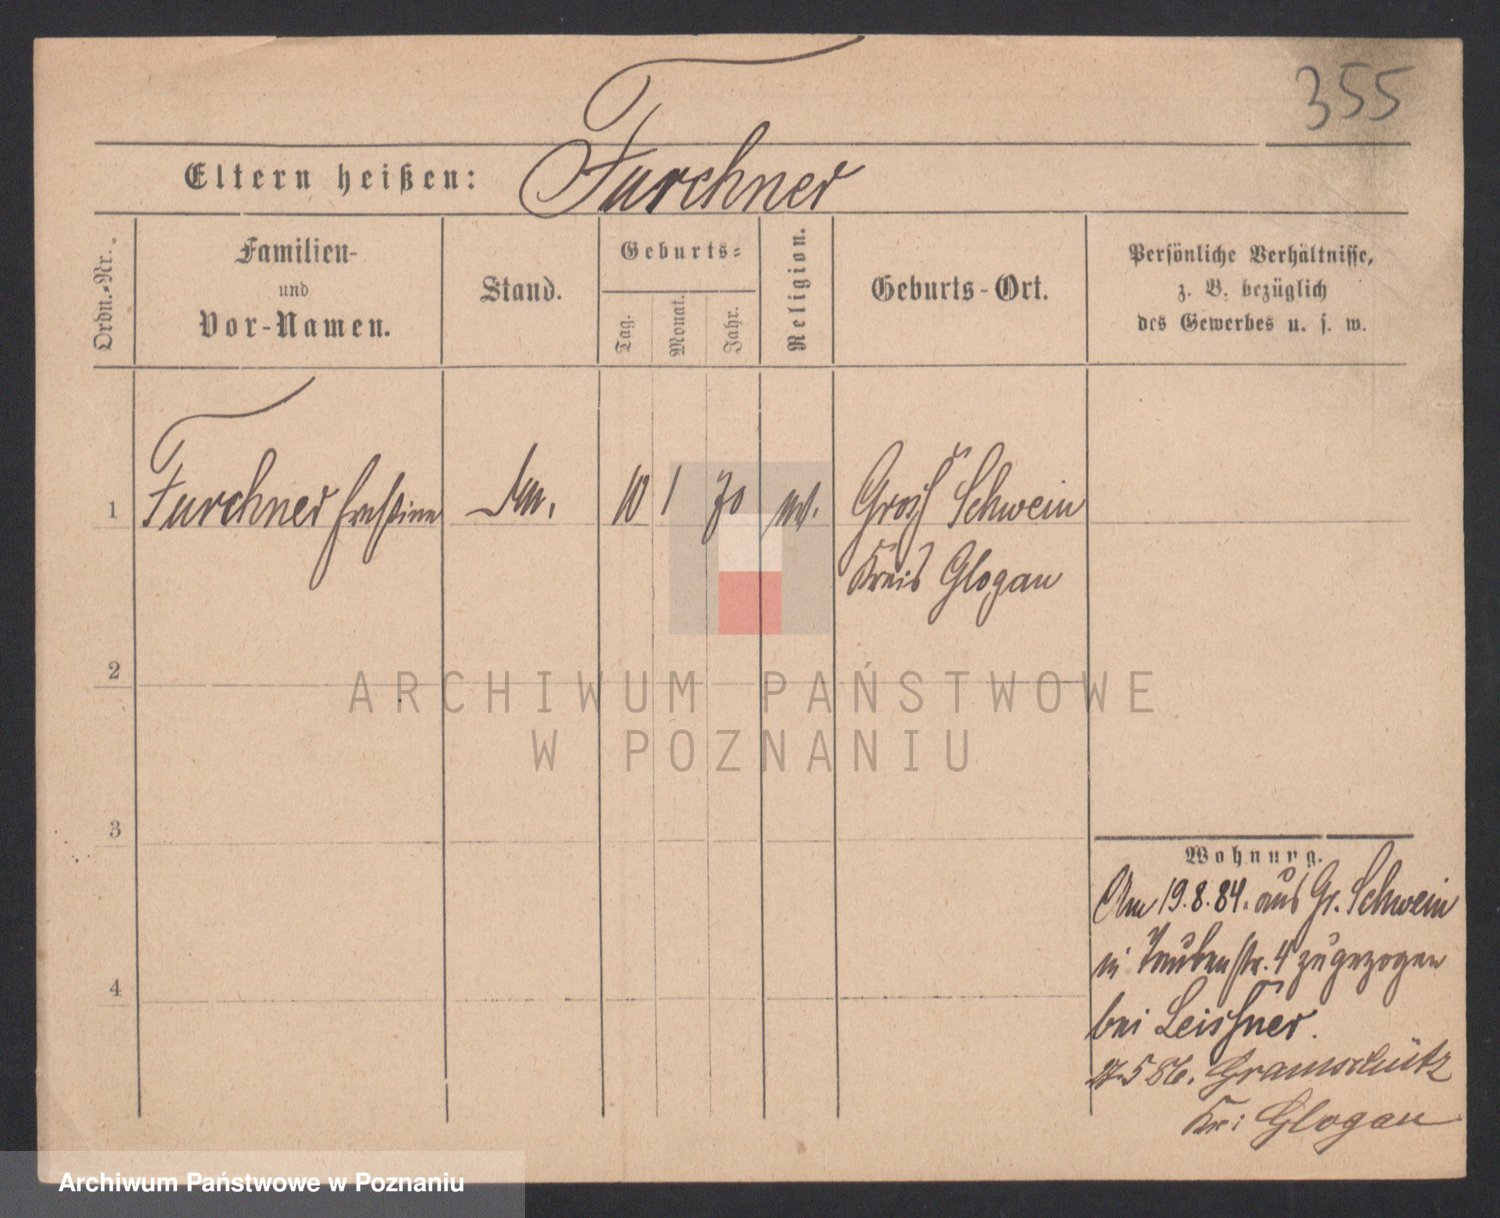 355
Eltern heißen: Furchner
Ordn.-Nr.
Familien-
und
Vor-Namen.
Stand.
Geburts-
Tag.
Monat.
Jahr.
Religion.
Geburts-Ort.
Persönliche Verhältnisse,
z. B. bezüglich
des Gewerbes u. s. w.
1 Furchner Ernestine 10 1 70 ev. Groß Schwein
Kreis Glogau
2
ARCHIWUM PAŃSTWOWE
W POZNANIU
3
Wohnung.
Am 19.8.84. aus Gr. Schwein
in Taubenstr. 4 zugezogen
bei Leissner.
5 86. Gramschütz
Kr: Glogau
4
Archiwum Państwowe w Poznaniu